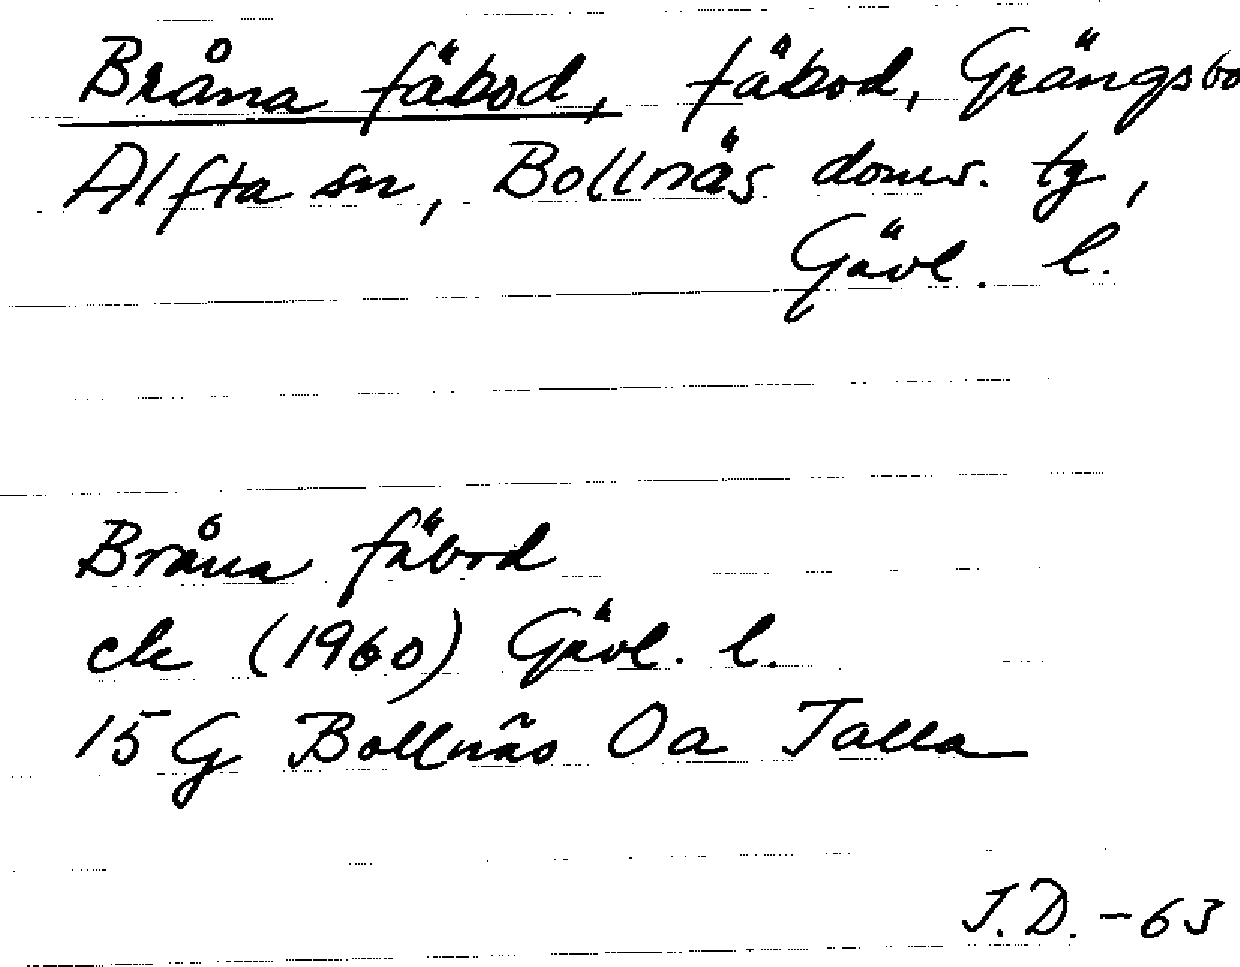 Bråna fäbod, fäbod, Grängsbo
Alfta sn, Bollnäs doms. tg,
Gävl. l.
Bråna fäbod
ek (1960) Gävl. l.
15 G Bollnäs 0a Talla
J.D. -63